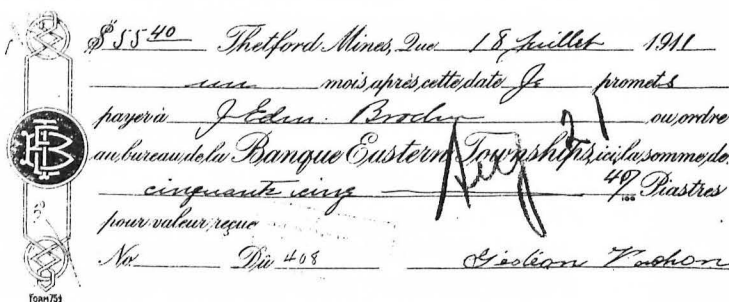 $ 55 40 Thetford Mines, Que 18 Juillet 1911
un mois après cette date Je promets
payer à J Edm. Brochu ou ordre
au bureau de la Banque Eastern Townships, ici, la somme de
cinquante cinq 40/100 Piastres
pour valeur reçue
No Dû 408 Vachon
FORM 754